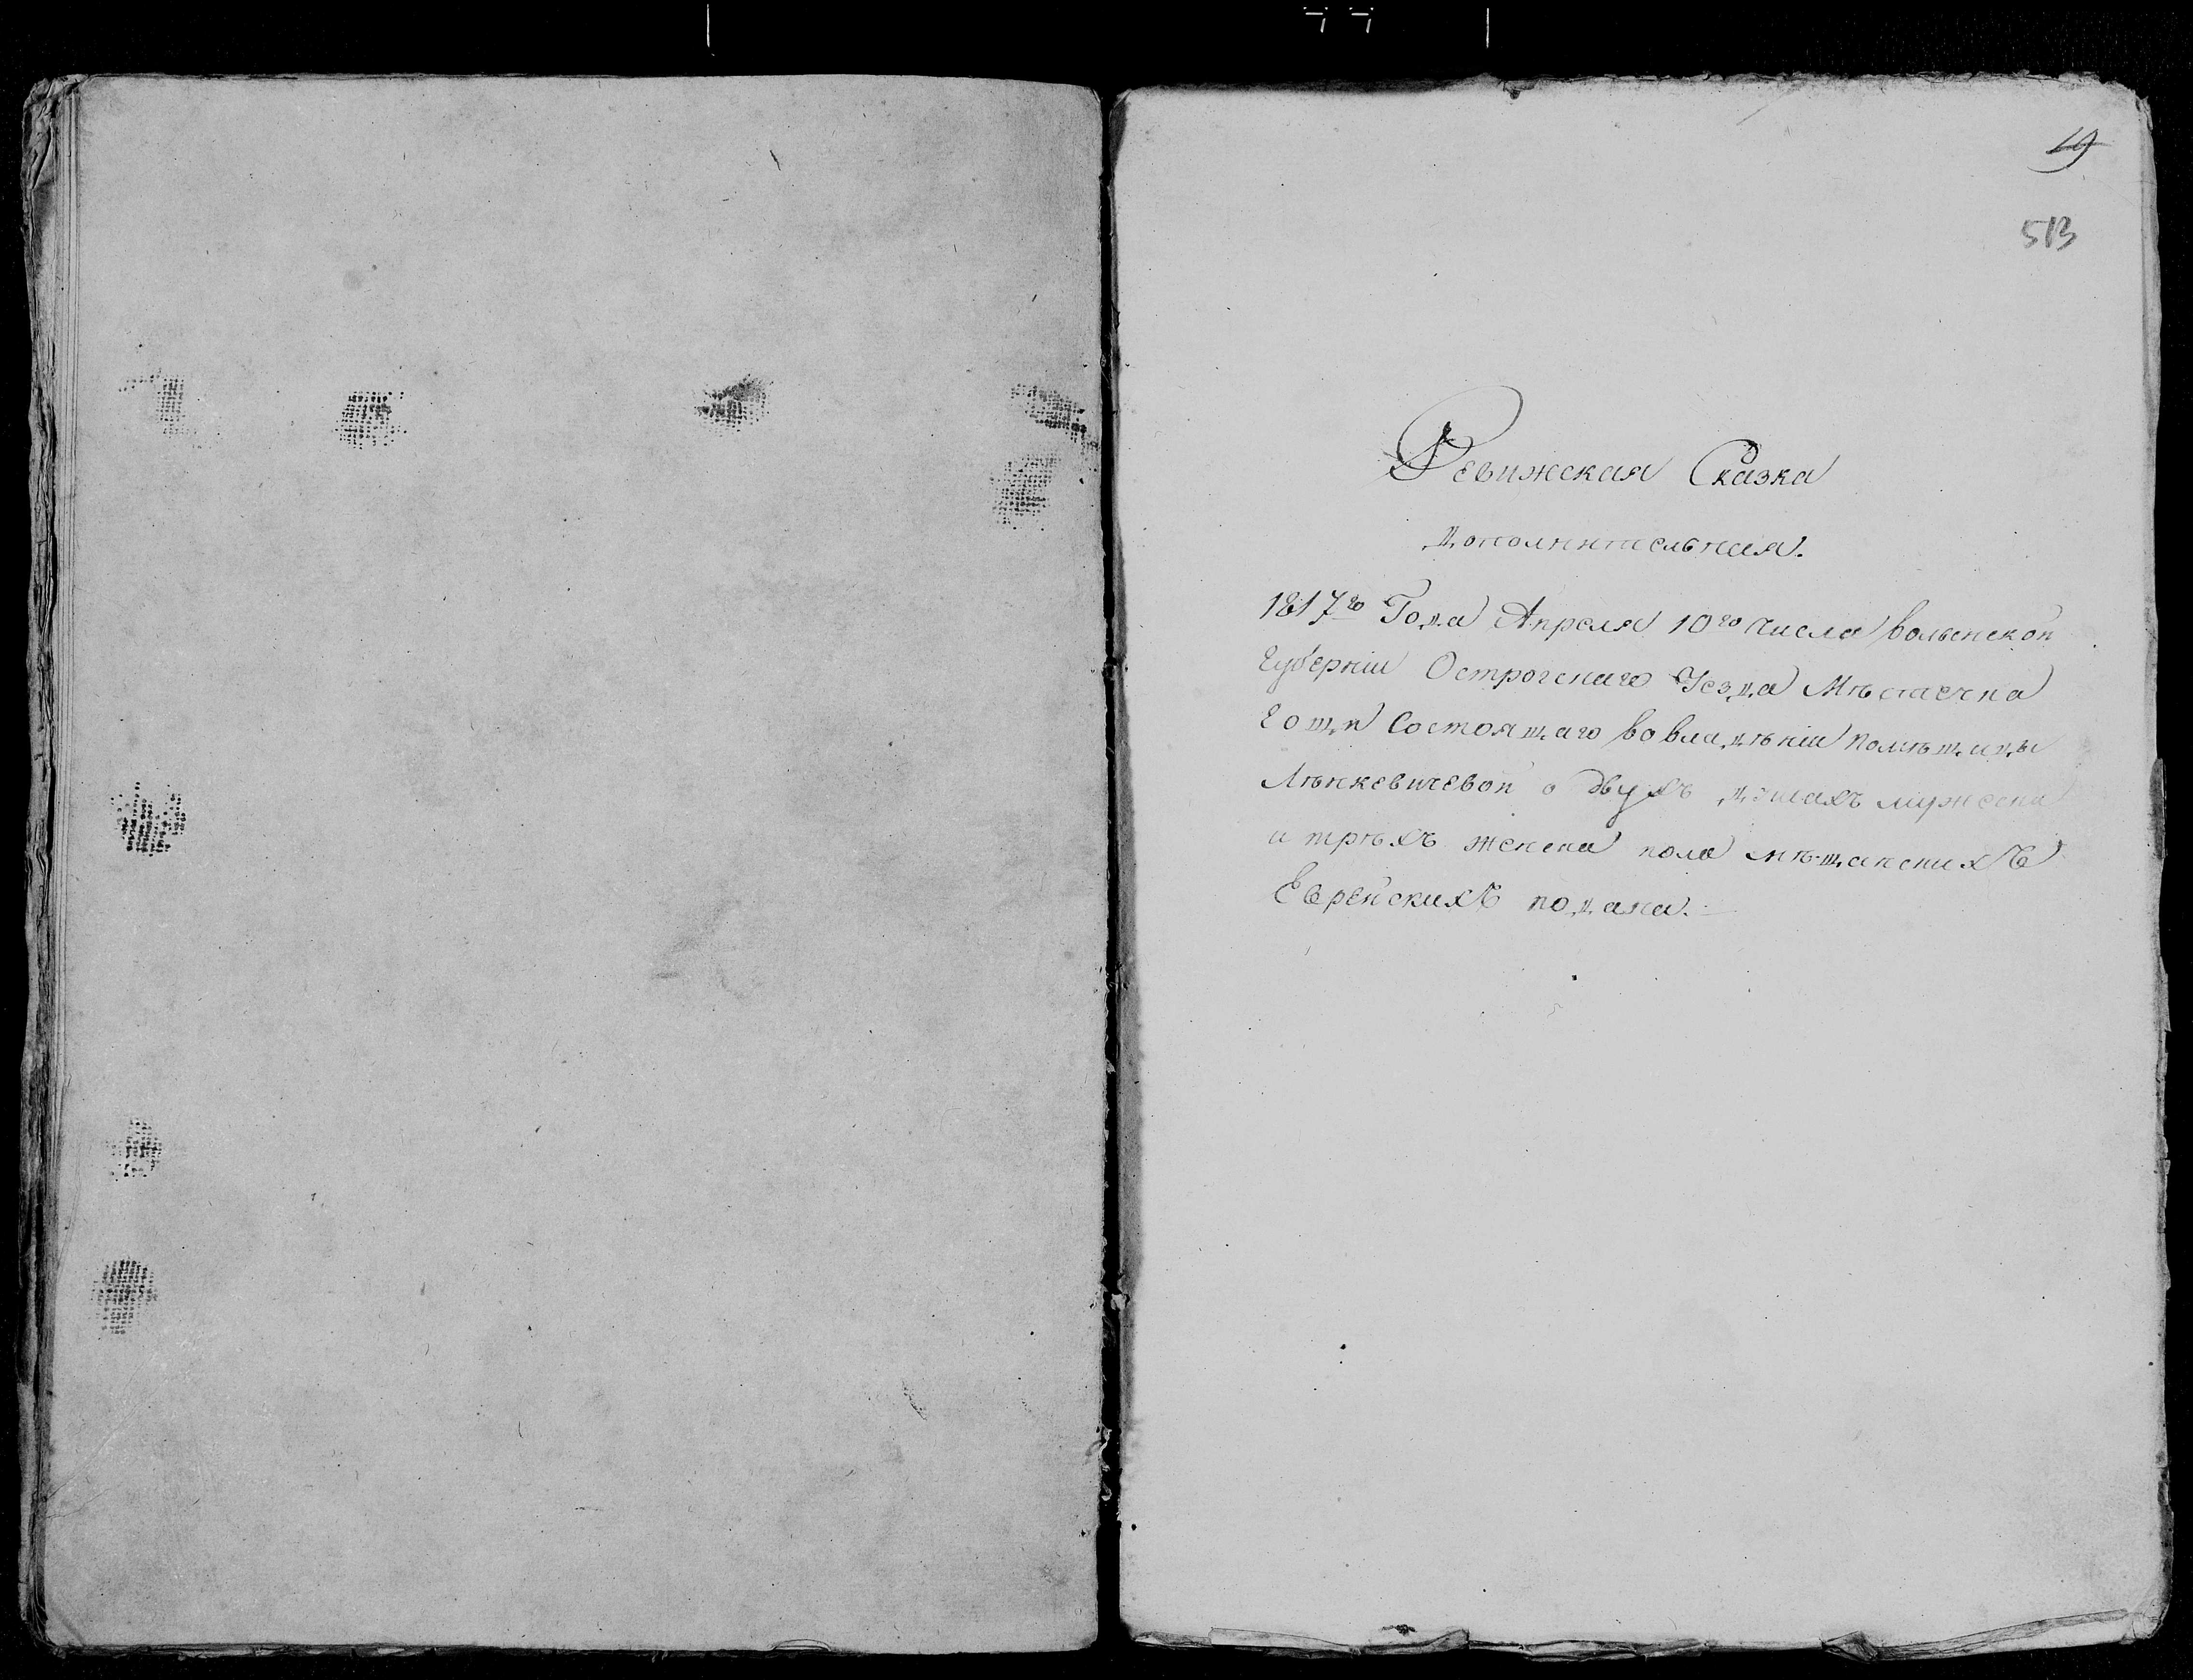 19
513
Ревижская Сказка
дополнительная.
1817го Года Апреля 10го числа волынской
Губерніи Острогскаго Уезда Мѣстечка
Гощи Состоящаго во владѣніи помѣщицы
Лѣнкевичевой о двухъ душахъ мужеска
и трѣхъ женска пола мѣщанскихъ
Еврейскихъ подана.